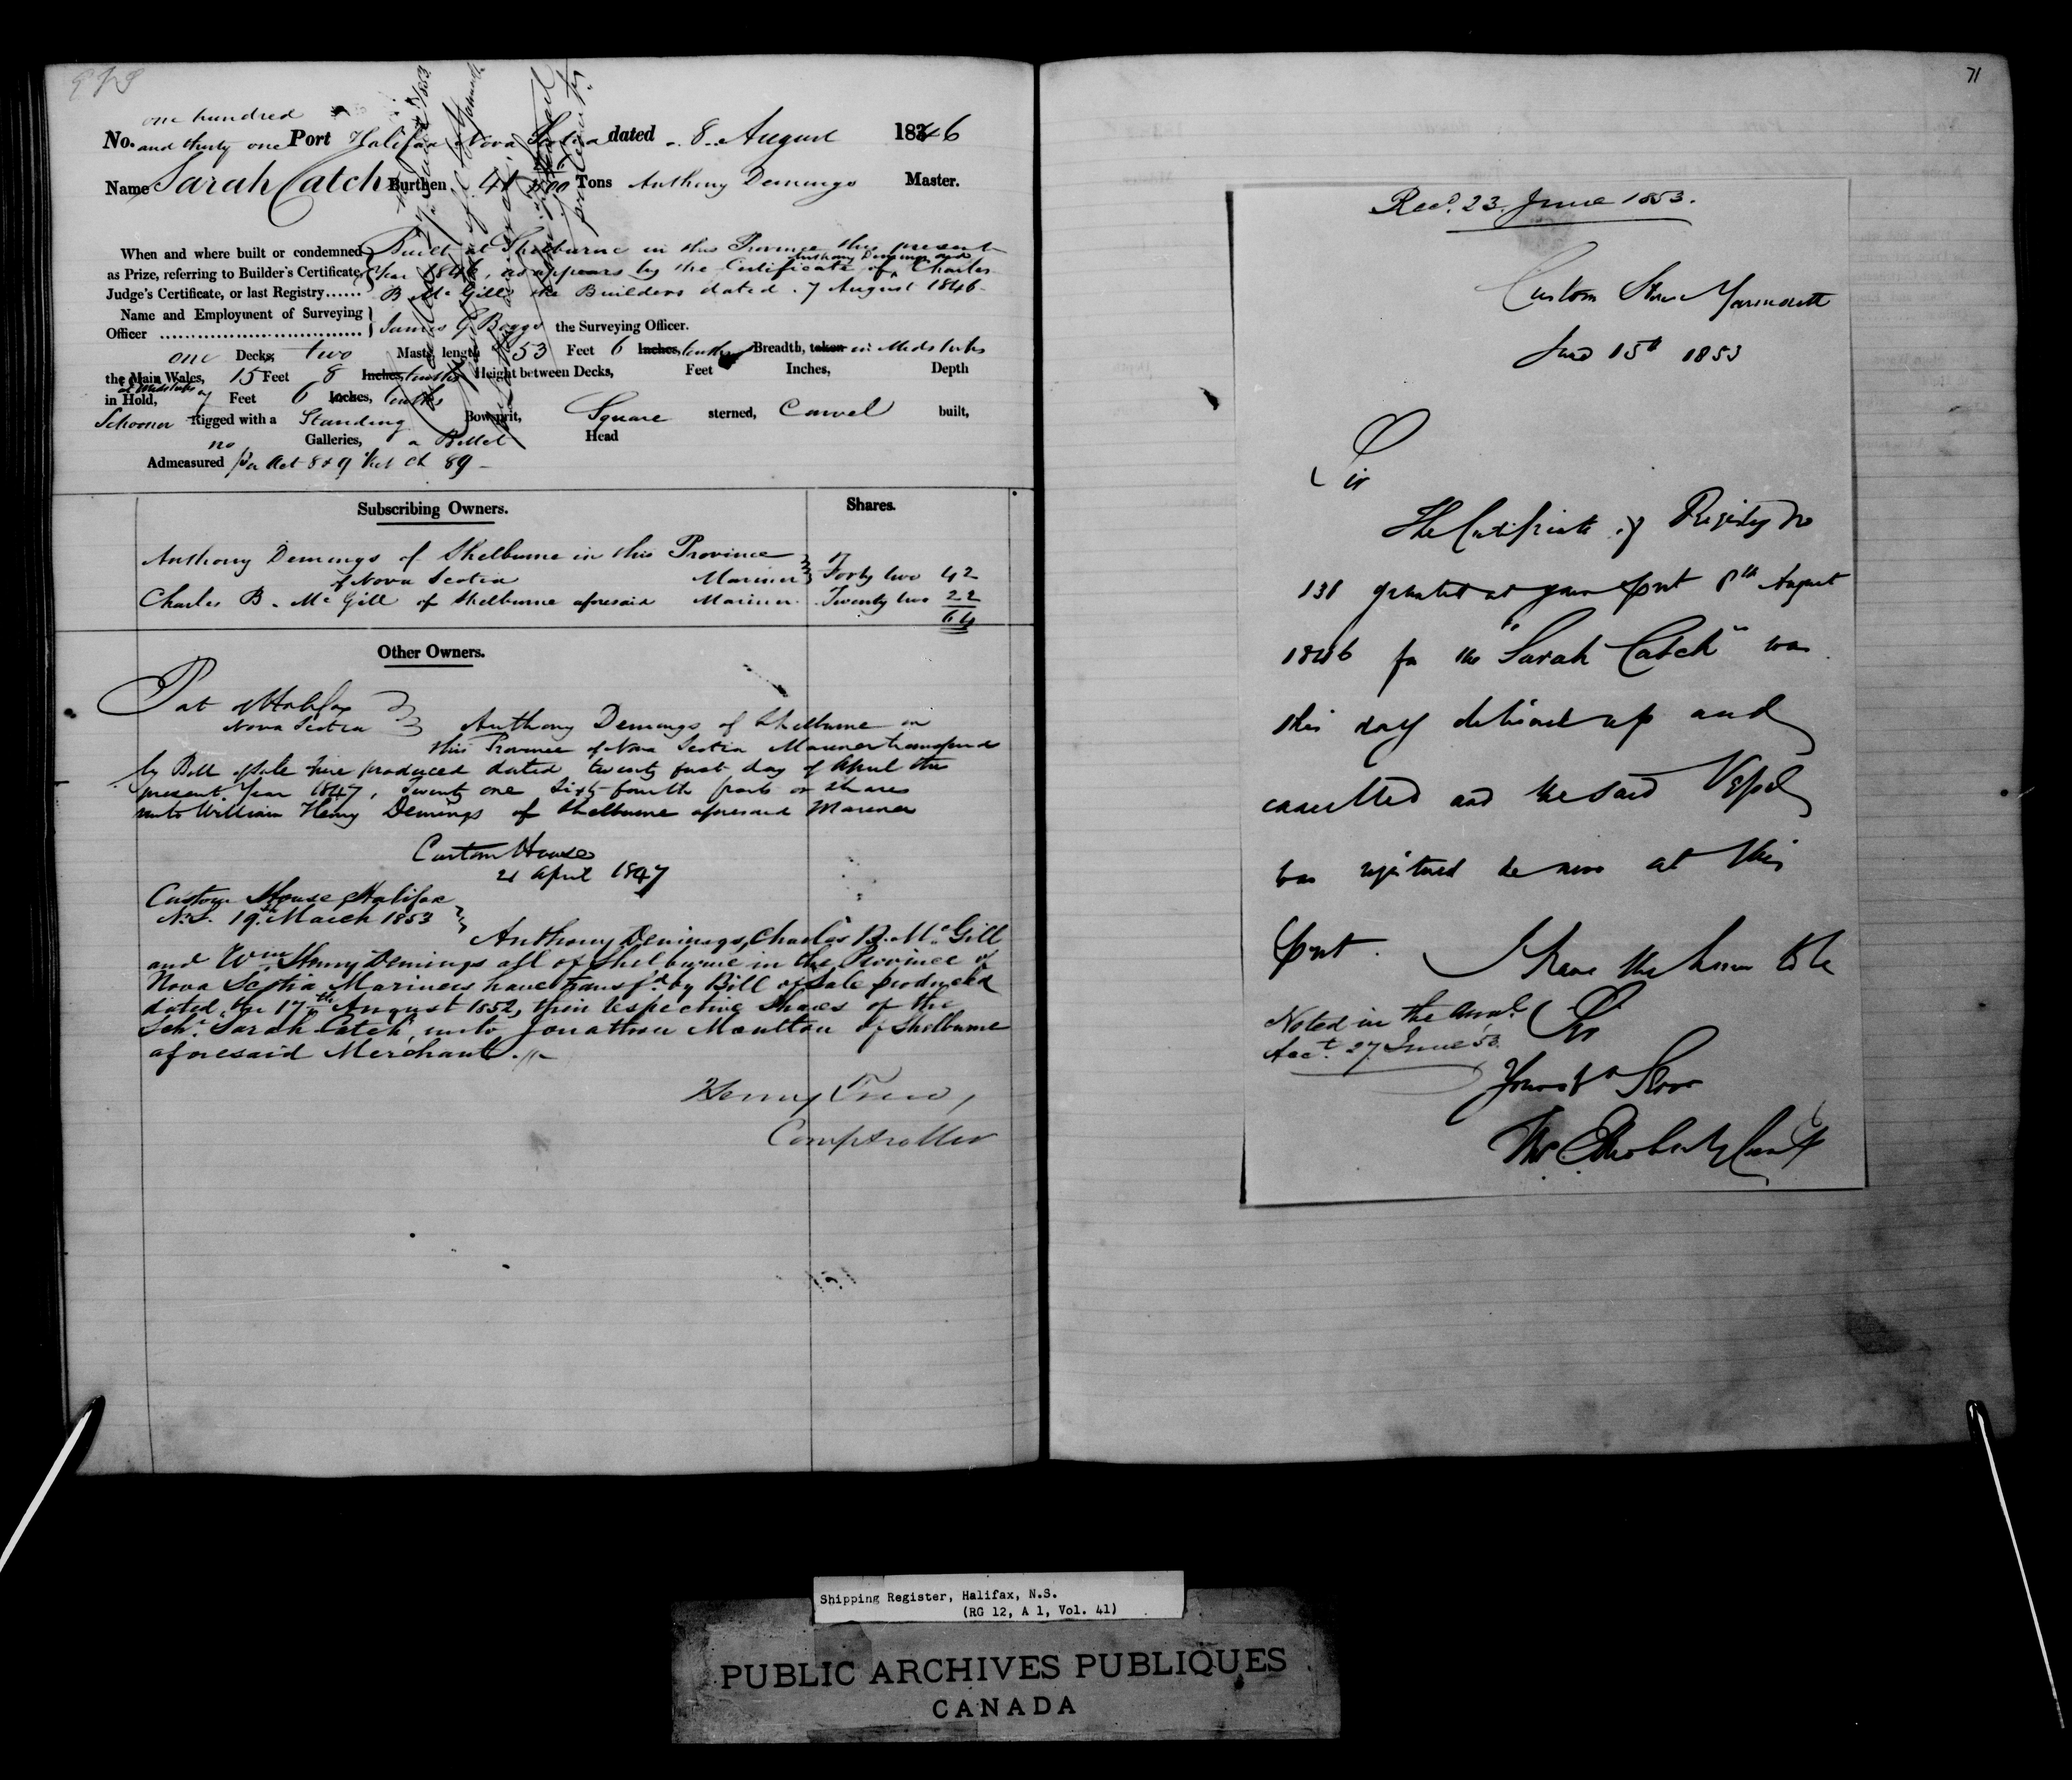 one hundred
No. and thirty one Port Halifax Nova Scotia dated 8 August 1846
Name Sarah Catch Burthen 41 Tons Anthony Demings Master.
When and where built or condemned Built at Shelburne in this Province this present
as Prize, referring to Builder's Certificate, Year 1846, as appears by the Certificate of Anthony Demings and Charles
Judge's Certificate, or last Registry...... B. McGill the Builders dated 7 August 1846
Name and Employment of Surveying
Officer James G Boggs the Surveying Officer.
one Decks, two Masts, length 53 Feet 6 Inches, tenths Breadth, taken in Midships
the Main Wales, 15 Feet 8 Inches, tenths Height between Decks, Feet Inches, Depth
in Hold, at Midships 7 Feet 6 Inches, tenths
Schooner Rigged with a Standing Bowsprit, Square sterned, Carvel built,
no Galleries, a Billet Head
Admeasured per Act 8 & 9 Vict Ch 89
Subscribing Owners. Shares.
Anthony Demings of Shelburne in this Province
of Nova Scotia Mariner Forty two 42
Charles B. McGill of Shelburne aforesaid Mariner Twenty two 22
64
Other Owners.
Port of Halifax
Nova Scotia Anthony Demings of Shelburne in
this Province of Nova Scotia Mariner transferred
by Bill of Sale here produced dated twenty first day of April this
present Year 1847, Twenty one Sixty fourth parts or shares
unto William Henry Demings of Shelburne aforesaid Mariner
Custom House
21 April 1847
Custom House Halifax
N.S. 19th March 1853
Anthony Demings, Charles B. McGill
and Wm Henry Demings all of Shelburne in the Province of
Nova Scotia Mariners have transfd by Bill of Sale produced
dated the 17th August 1852, their respective Shares of the
Schr Sarah Catch unto Jonathan Moulton of Shelburne
aforesaid Merchant.
Henry Trew,
Comptroller
71
Recd. 23. June 1853.
Custom House Yarmouth
June 15th 1853
Sir
The Certificate of Registry No
131 granted at your Port 8th August
1846 for the "Sarah Catch" was
this day delivered up and
cancelled and the said Vessel
was registered de novo at this
Port. I have the honor to be
Noted in the Annl Sir
Acct. 27 June 53.
Your obt Serv
Shipping Register, Halifax, N.S.
(RG 12, A 1, Vol. 41)
PUBLIC ARCHIVES PUBLIQUES
CANADA